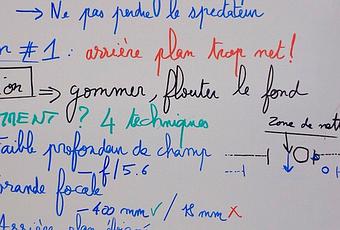 → Ne pas perdre le spectateur
n #1 : arrière plan trop net!
ion ⇒ gommer, flouter le fond
MMENT ? 4 techniques
Zone de nett
faible profondeur de champ
f/5.6
Grande focale
400 mm ✓ / 18 mm ✗
Arrière plan éloigné